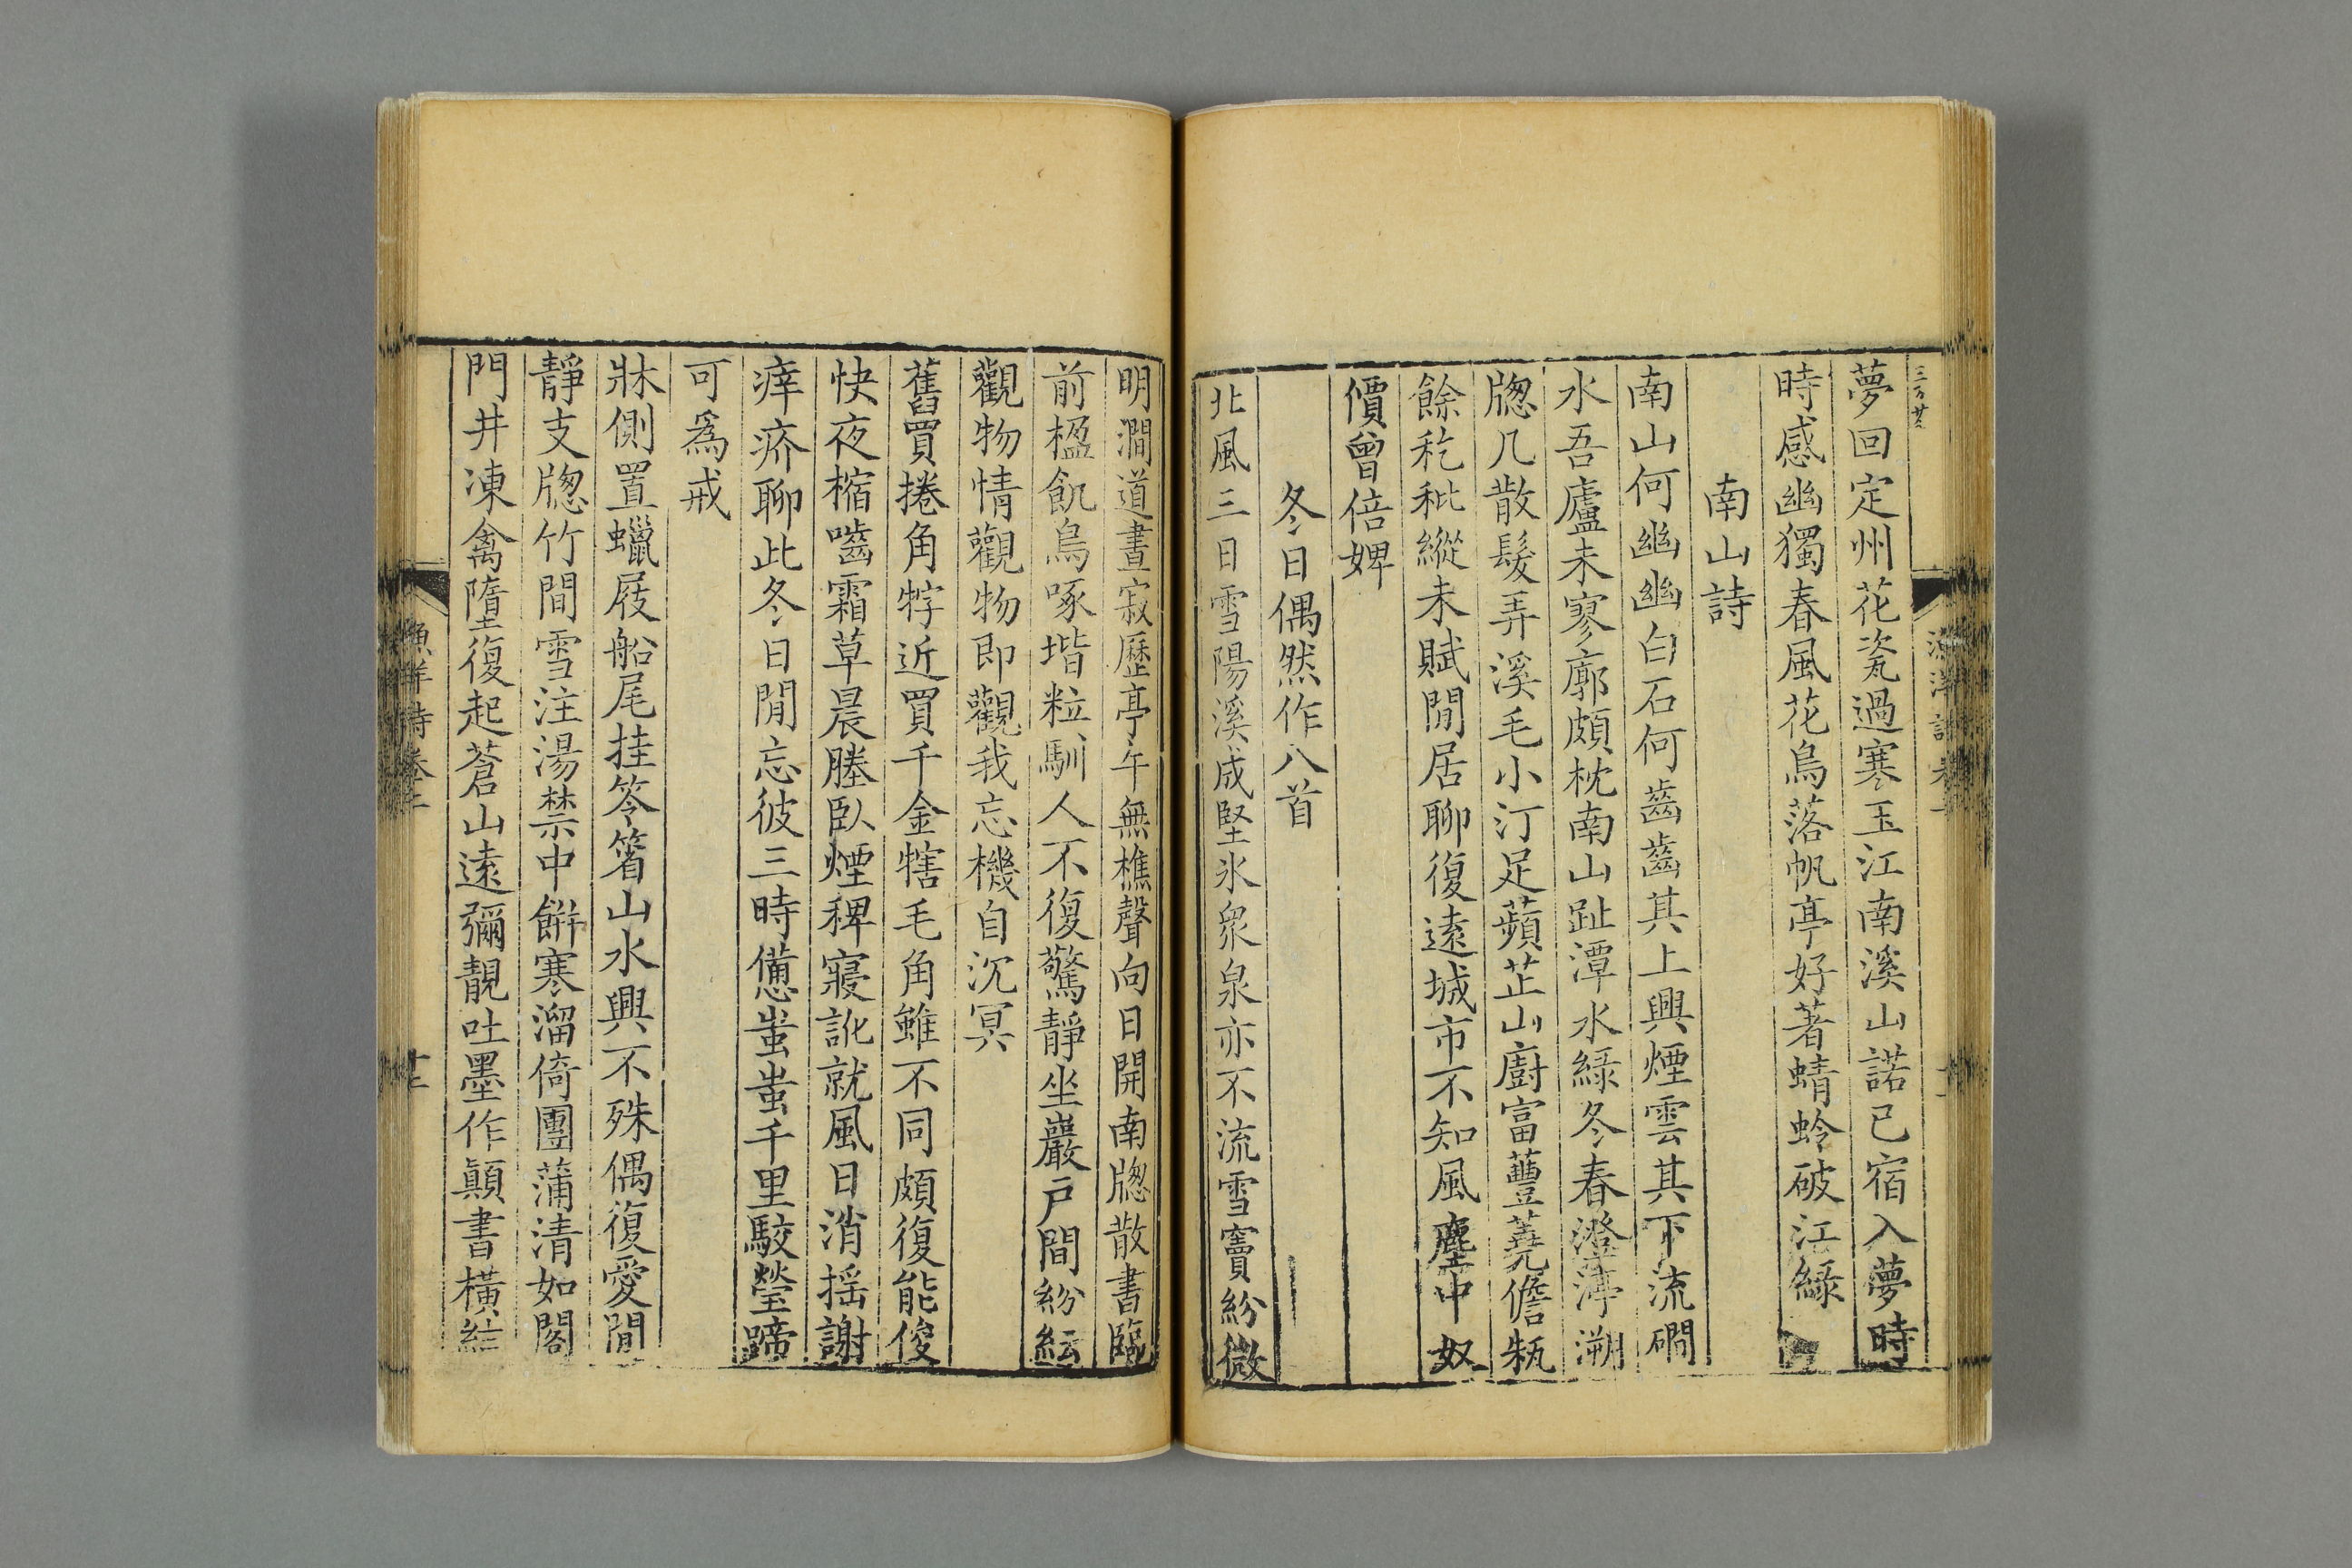 夢回定州花瓷過寒玉江南溪山諾已宿入夢時
時感幽獨春風花鳥落帆亭好著蜻蛉破江綠
南山詩
南山何幽幽白石何齒齒其上興煙雲其下流磵
水吾廬未寥廓頗枕南山趾潭水綠冬春澄渟溯
牕几散髮弄溪毛小汀足蘋芷山廚富蘴蕘儋秇
餘秔秕縱未賦閒居聊復遠城市不知風塵中奴
價曾倍婢
冬日偶然作八首
北風三日雪陽溪成堅氷衆泉亦不流雪竇紛微
明澗道晝寂歷亭午無樵聲向日開南牕散書臨
前楹飢烏啄堦粒馴人不復驚靜坐巖戸間紛紜
觀物情觀物即觀我忘機自沉冥
舊買捲角牸近買千金犗毛角雖不同頗復能俊
快夜樎嚙霜草晨塍臥煙稗寢訛就風日消搖謝
痒疥聊此冬日閒忘彼三時憊蚩蚩千里駮瑩蹄
可爲戒
牀側置蠟屐船尾挂笭箵山水興不殊偶復愛閒
靜支牕竹間雪注湯禁中餠寒溜倚團蒲清如閣
門井凍禽墮復起蒼山遠彌靚吐墨作顚書橫
漁洋詩卷十
漁洋詩卷十